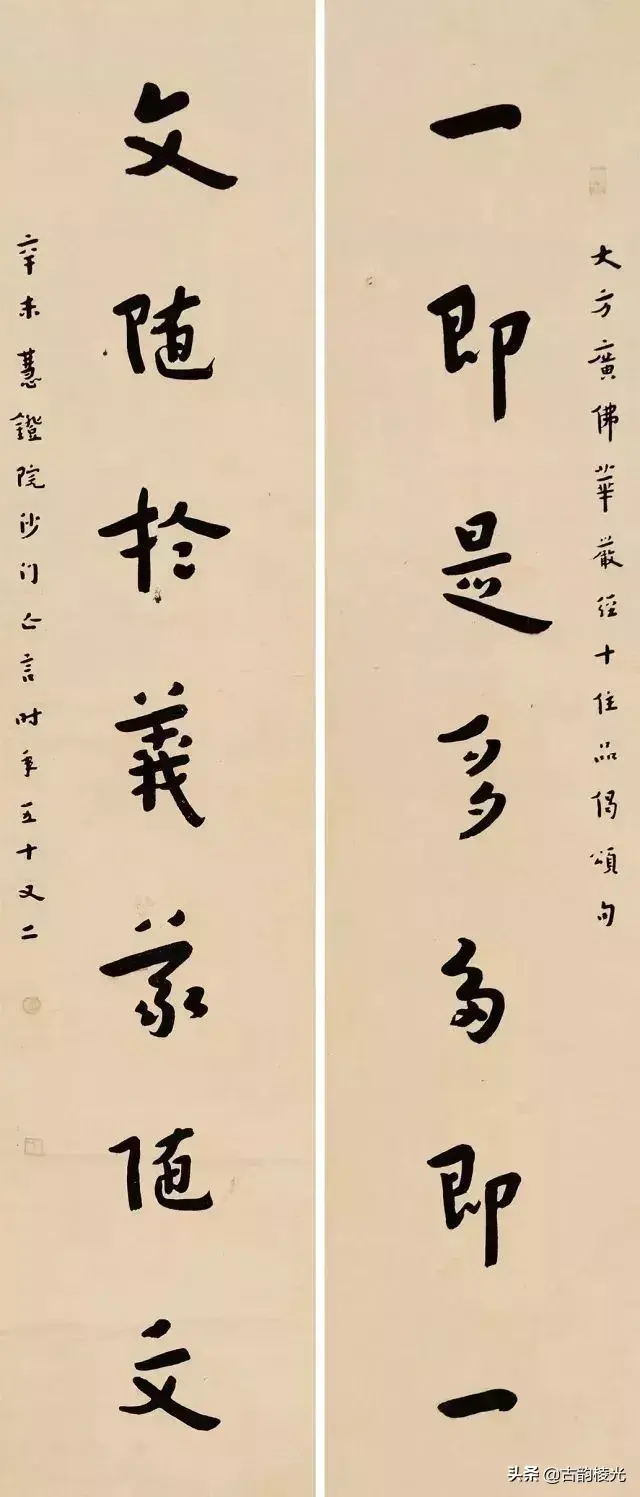 大方廣佛華嚴經十住品偈頌句
一即是多多即一
文随扵義義随文
辛未慧鐙院沙门亡言时年五十又二
头条 @古韵棱光